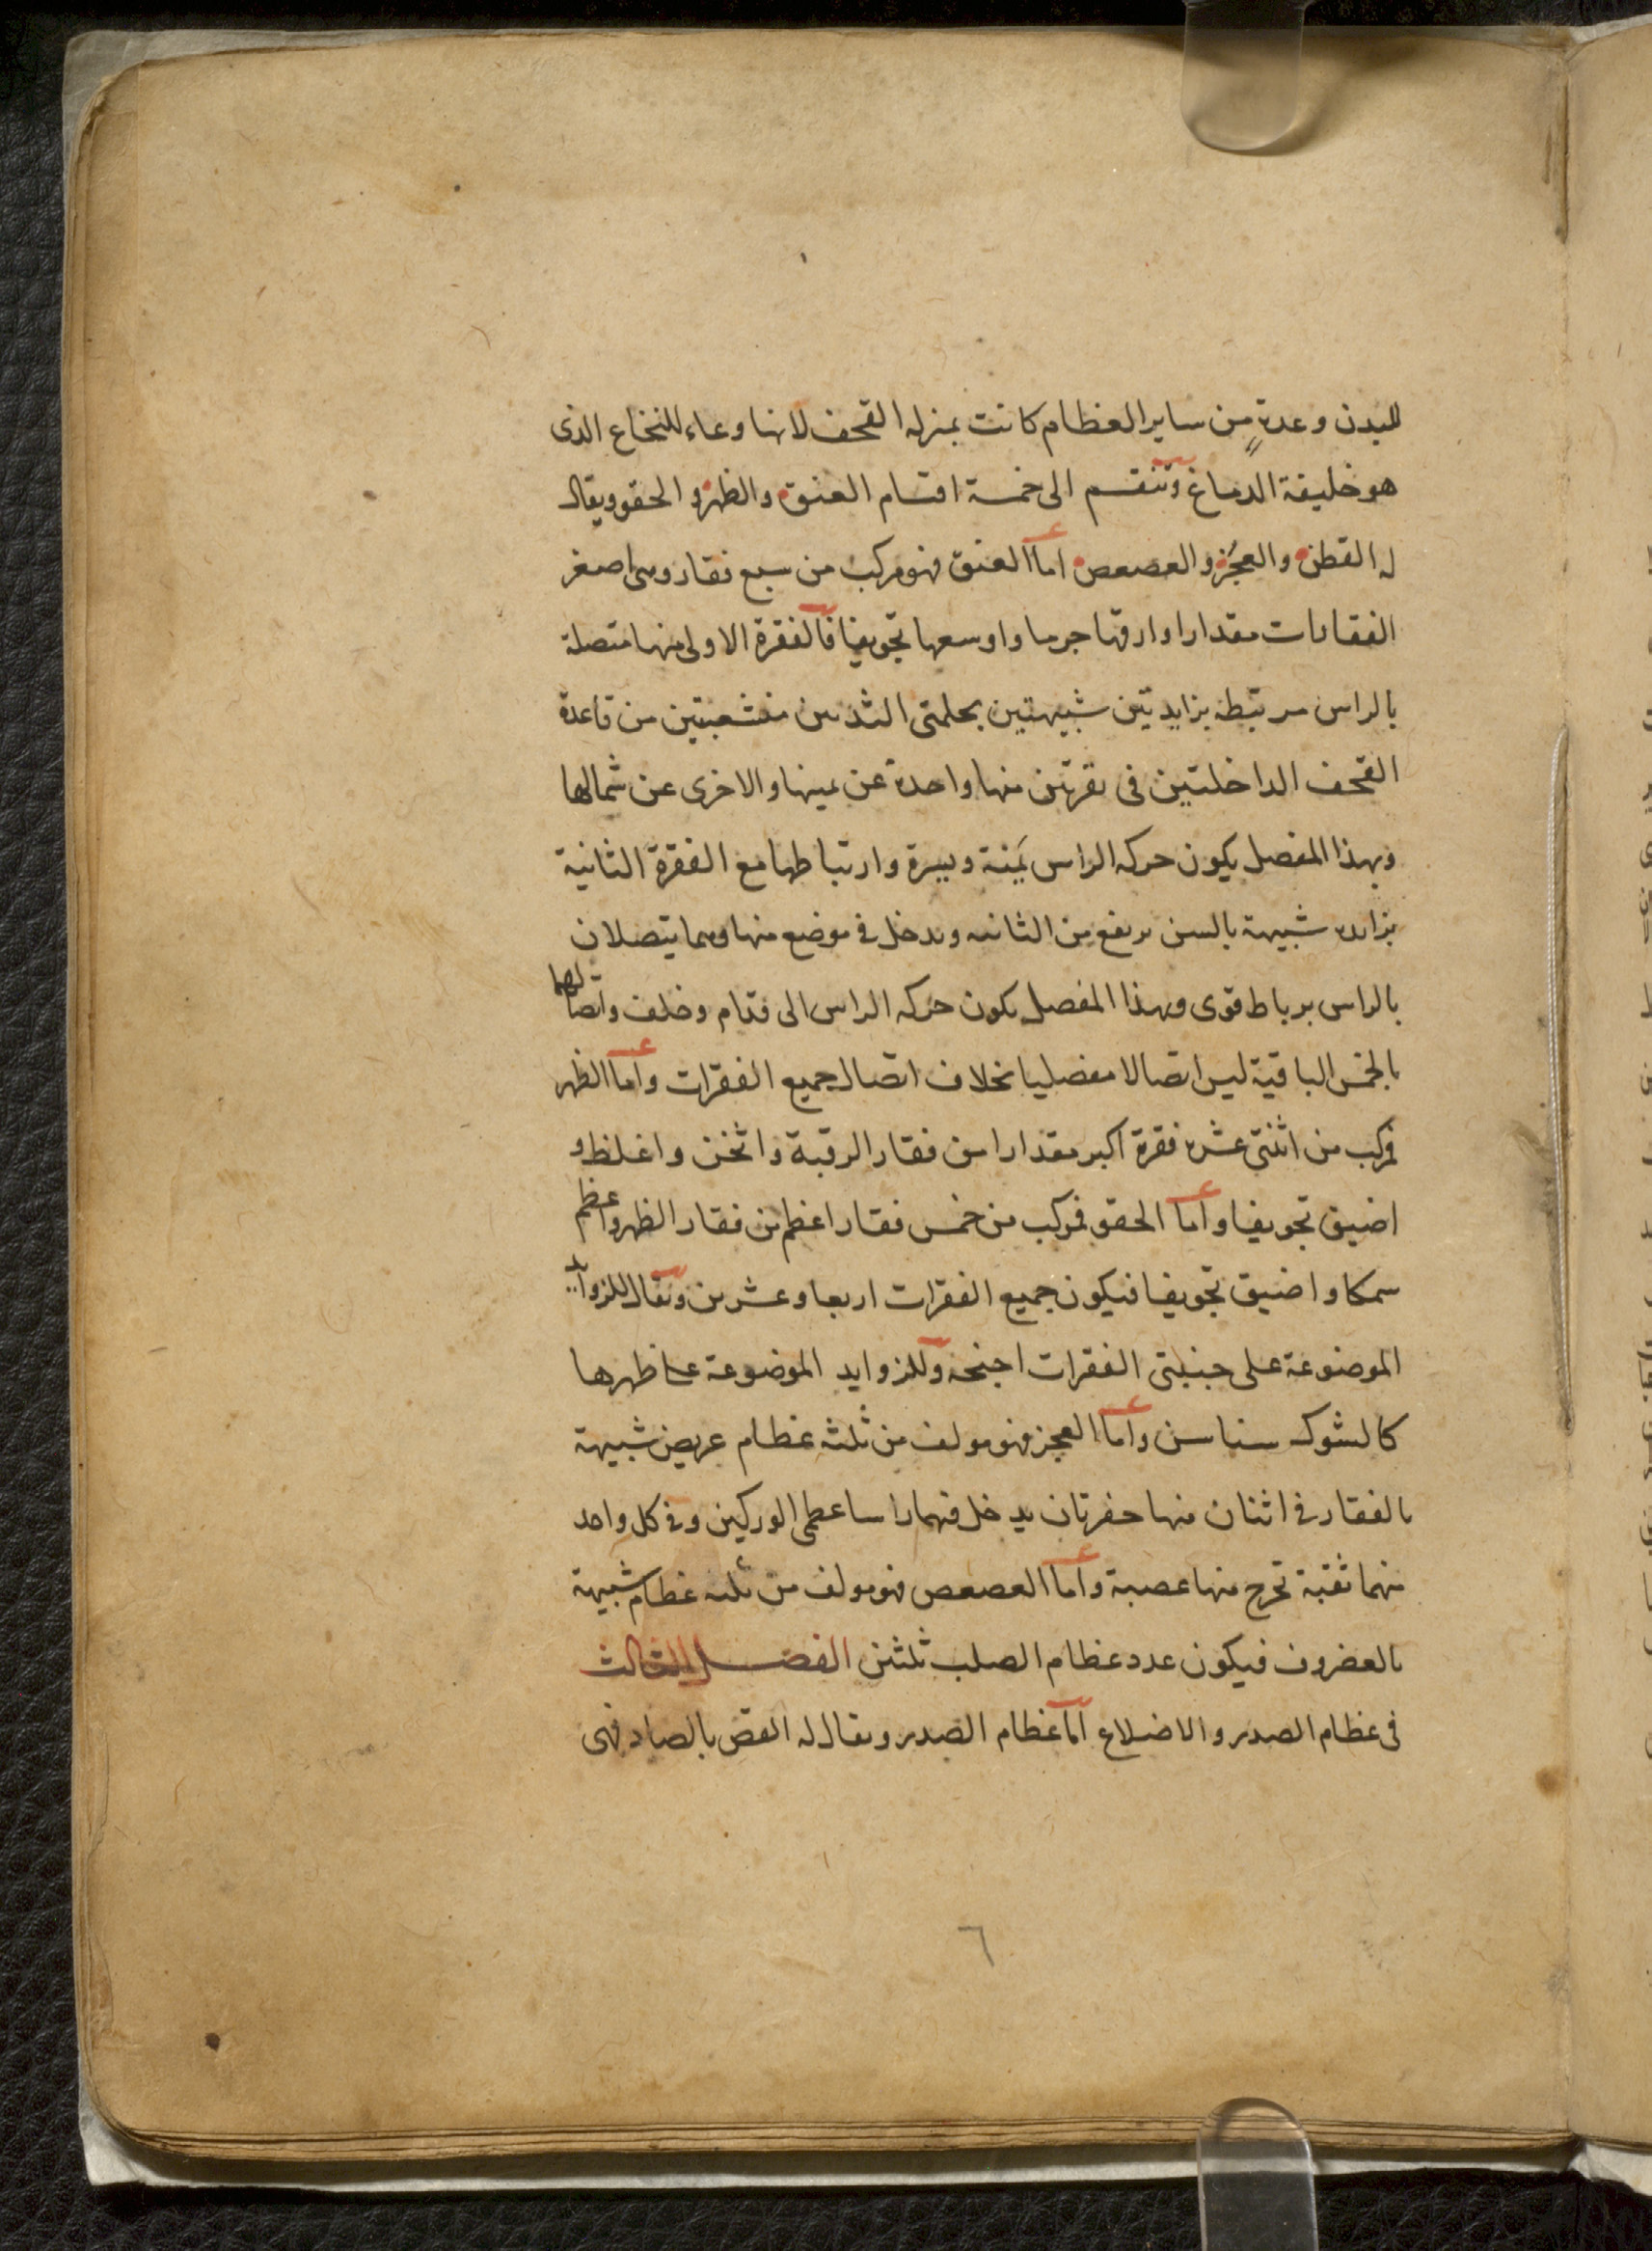 للبدن وعدةٍ من ساير العظام كانت بمنزله القحف لانها وعاء للنخاع الذى
هو خليفة الدماغ وتنقسم الى خمسة اقسام العنق والظهر والحقو ويقال
له القطن والعجُز والعصعص اما العنق فهو مركب من سبع فقار وهى اصغر
الفقارات مقدارا وارقها جرما واوسعها تجويفا فالفقرة الاولى منها متصلة
بالراس مرتبطه بزايدتين شبيهتين بحلمتى الثدىىن منشعبتين من قاعدة
القحف الداخلتين فى نقرتين منها واحدة عن يمينها والاخرى عن شمالها
وبهذا المفصل يكون حركه الراس يَمنة ويسرة وارتباطها مع الفقرة الثانية
بزايده شبيهة بالسن ترتفع من الثانيه وتدخل فى موضع منها وهما يتصلان
بالراس برباط قوى وبهذا المفصل يكون حركه الراس الى قدام وخلف واتصالهما
بالخمس الباقية ليس اتصالا مفصليا بخلاف اتصال جميع الفقرات واما الظهر
فمركب من اثنتى عشره فقرة اكبر مقدارا من فقار الرقبة واثخن واغلظ و
اضيق تجويفا واما الحقو فمركب من خمس فقار اعظم من فقار الظهر واعظم
سمكا واضيق تجويفا فيكون جميع الفقرات اربعا وعشرين ويقال للزوايد
الموضوعة على جنبتى الفقرات اجنحه وللزوايد الموضوعة على ظهرها
كالشوك سناسن واما العجز فهو مولف من ثلثه عظام عريض شبيهة
بالفقار فى اثنان منها حفرتان يدخل فيهما راسا عظمى الوركين وفى كل واحد
منهما ثقبة تخرج منها عصبة واما العصعص فهو مولف من ثلثه عظام شبيهة
بالغضروف فيكون عدد عظام الصلب ثلثين الفصل الثالث
فى عظام الصدر والاضلاع اما عظام الصدر ويقال له القص بالصاد فهى
٦